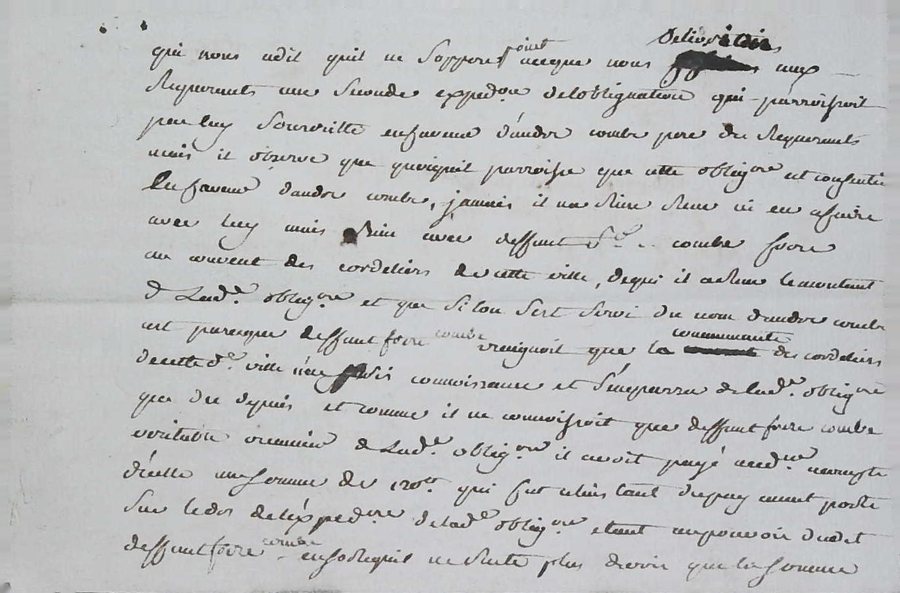 qui nous a dit quil ne soppose point a ceque nous delivrions aux
Requerants une seconde expedon. de lobligation qui parroissoit
par luy souscritte en faveur d'andre combe pere des Requerants
mais il observe que quoiquil parroisse que cette obligon. est consentie
en faveur dandre combe, jamais il na rien eu en affaire
avec luy mais bien avec deffunt combe frere
au couvent des cordeliers de cette ville, de qui il a le montant
de Ladte. obligon. et que si lon sest servi du nom dandre combe
cest parceque deffunt frere combe craignoit que la communauté des cordeliers
de cette de. ville n'eu connoissance et s'emparra de lade. obligon
que du depuis et comme il ne connoissoit que deffunt frere combe
veritable creancier de Lade. obligon. il avoit payé acompte
d'icelle une somme de 120lt. qui fut
sur le dos de l'expedon. de lade. obligon. etant au pouvoir dudit
deffunt frere combe en sorte quil ne reste plus devoir que la somme